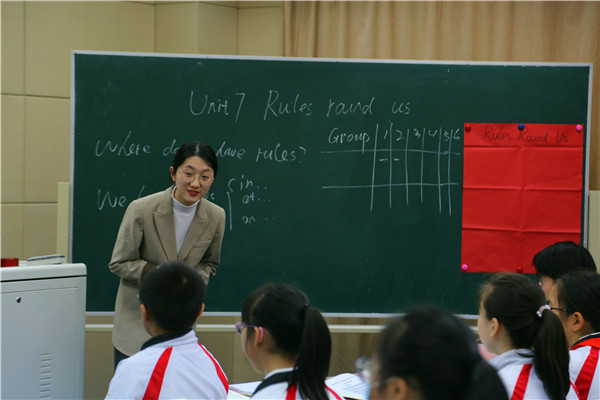 Unit 7 Rules round us
Where do have rules?
We
in...
at...
on...
Group 1 2 3 4 5 6
- -
Rules Round Us